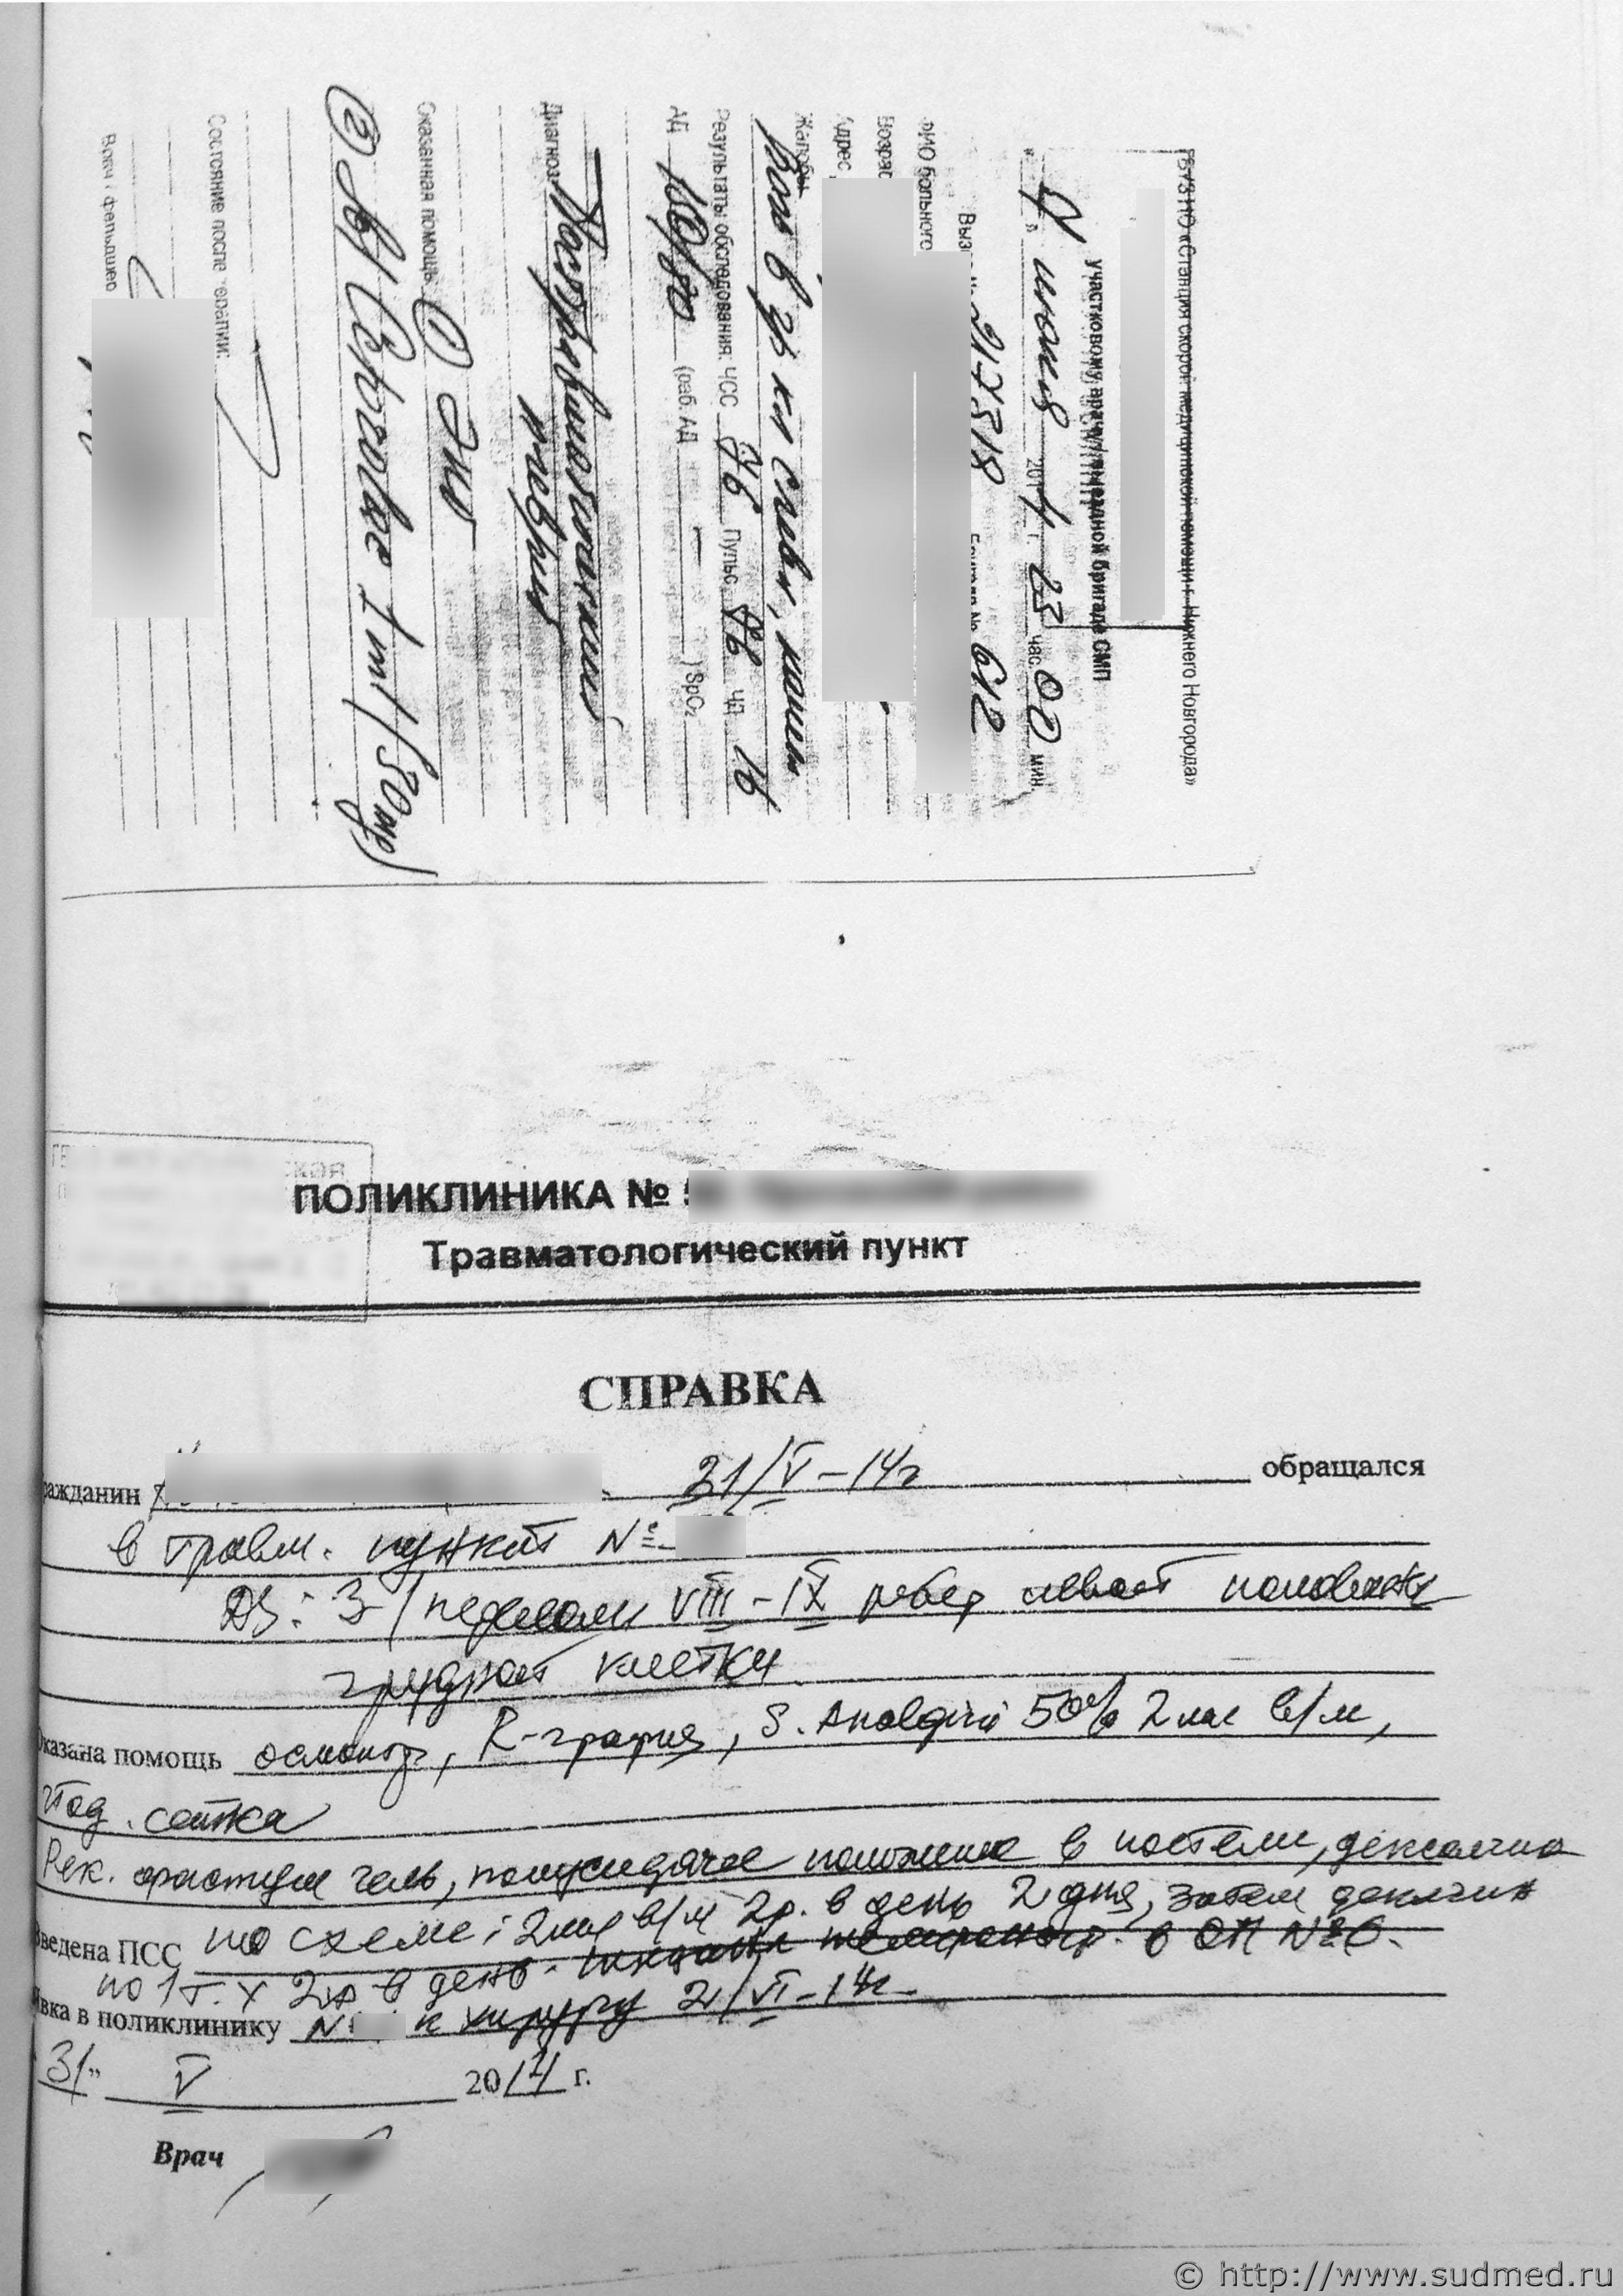 ГБУЗ НО «Станция скорой медицинской помощи г. Нижнего Новгорода»
участковому врачу/выездной бригаде СМП
" 4 " июня 2014 г. 23 час. 00 мин.
Вызов № 217318 Бригада № 612
ФИО больного
Возраст
Адрес
Жалобы
боль в гр кл слева, кашель
Результаты обследования: ЧСС 76 Пульс 76 ЧД 16
АД 130/80 (раб. АД — ) SpO₂
Диагноз: Посттравматический
неврит
Оказанная помощь: ① ЭКГ
② в/м
Состояние после терапии:
Врач / фельдшер
ПОЛИКЛИНИКА №
Травматологический пункт
СПРАВКА
Гражданин 31/V – 14 г обращался
в травм. пункт №
DS: З/перелом VIII – IX ребер левой половины
грудной клетки
Оказана помощь осмотр, R-графия, S. Analgini 50% 2 мл в/м,
йод. сетка
Рек. фастум гель, полусидячее положение в постели, дексалгин
Введена ПСС по схеме: 2 мл в/м 2 р. в день 2 дня, затем дексалгин
по 1 т. х 2 р в день. в ОП № 6.
Явка в поликлинику № к хирургу 2/VI – 14 г.
"31" V 2014 г.
Врач
© http://www.sudmed.ru